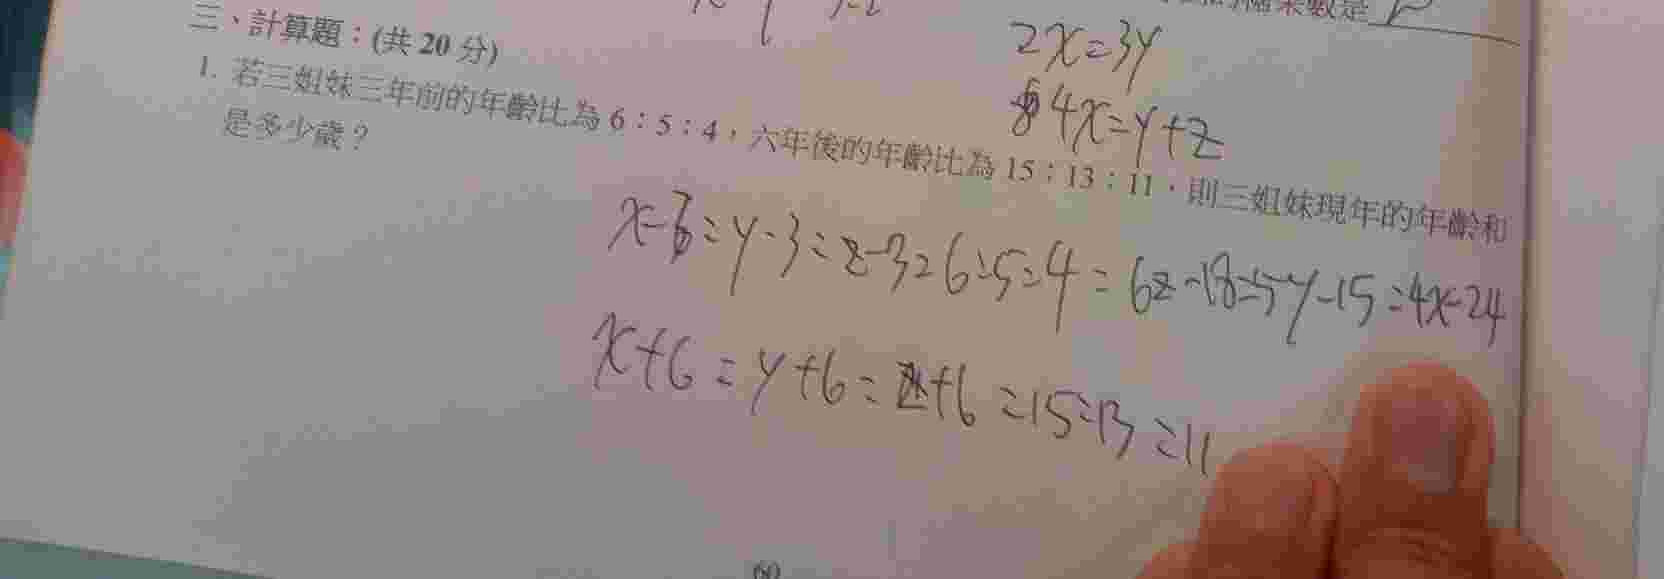 的檔案數是
三、計算題：(共 20 分)
2x=3y
4x=y+z
1. 若三姐妹三年前的年齡比為 6：5：4，六年後的年齡比為 15：13：11，則三姐妹現年的年齡和
是多少歲？
x-3:y-3:z-3=6:5:4=6z-18=5y-15=4x-24
x+6:y+6:z+6=15:13:11
60